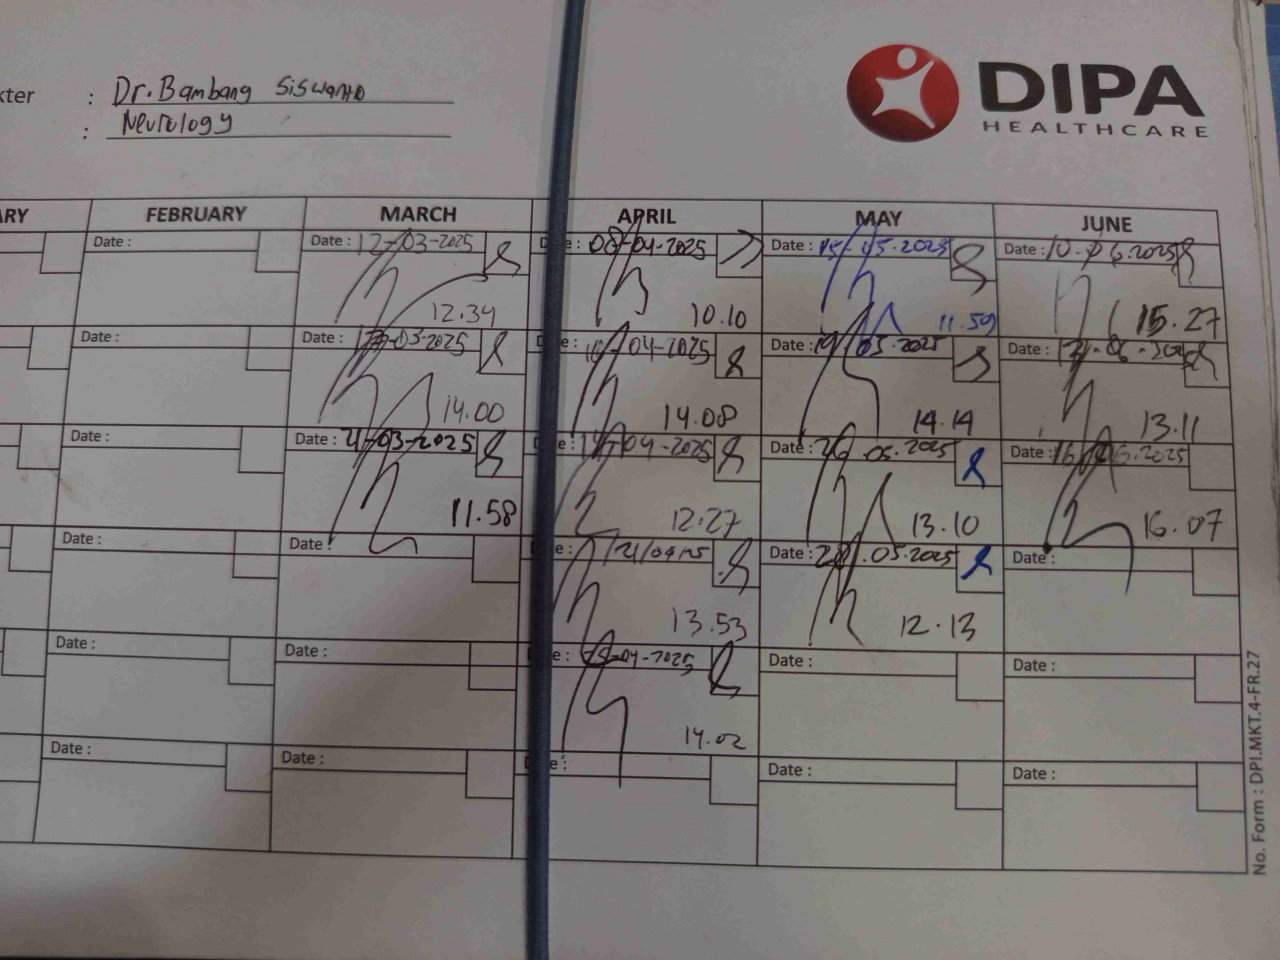 : Dr. Bambang Siswanto
: Neurology
DIPA
HEALTHCARE
FEBRUARY MARCH APRIL MAY JUNE
Date : Date : 12-03-2025 08-04-2025 Date : 15.05.2025 Date : 10.06.2025
12.34 10.10 11.59 15.27
Date : -03-2025 -04-2025 Date : 19 05.2025 Date :
14.00 14.08 14.14 13.11
Date : Date : 21-03-2025 -04-2025 Date : 26.05.2025 Date : 16.06.2025
11.58 12.27 13.10 16.07
Date : Date : 21/04/25 Date : .05.2025 Date :
13.53 12.13
Date : Date : -04-2025 Date : Date :
14.02
Date : Date : Date : Date :
No. Form : DPI.MKT.4-FR.27